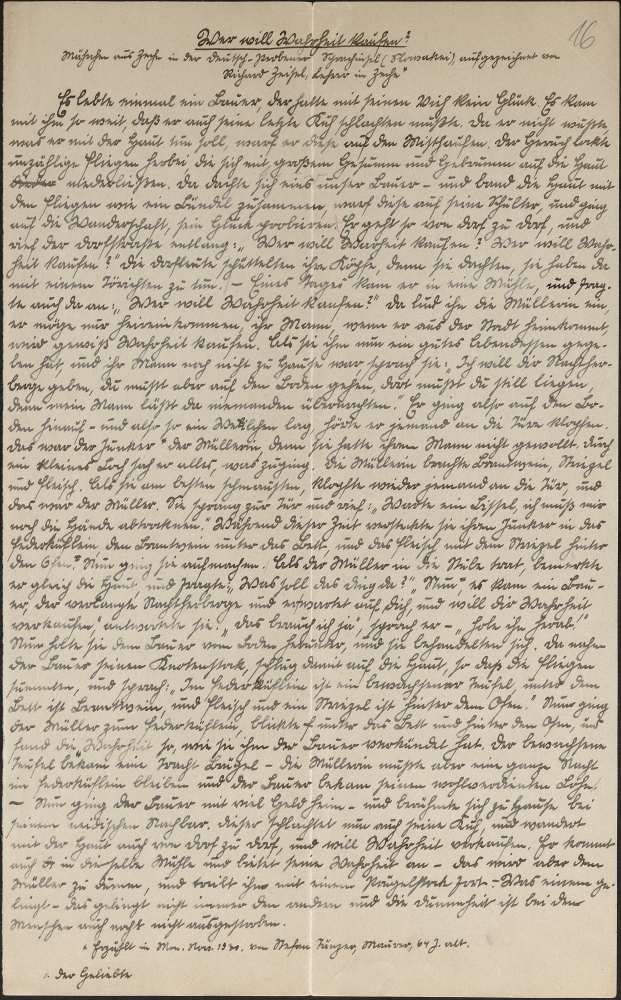 16
Wer will Wahrheit kaufen?
Märchen aus Zeche in der Deutsch-Probener Sprachinsel (Slowakei), aufgezeichnet von
Richard Zeisel, Lehrer in Zeche
Es lebte einmal ein Bauer, der hatte mit seinem Vieh kein Glück. Es kam
mit ihm so weit, daß er auch seine letzte Kuh schlachten mußte. Da er nicht wußte,
was er mit der Haut tun soll, warf er diese auf den Misthaufen. Der Geruch lockte
unzählige Fliegen herbei die sich mit großem Gesumm und Gebrumm auf die Haut
niederließen. Da dachte sich eins unser Bauer – und band die Haut mit
den Fliegen wie ein Bündel zusammen, warf diese auf seine Schulter, und ging
auf die Wanderschaft, sein Glück probieren. Er geht so von Dorf zu Dorf, und
rief der Dorfstraße entlang: „Wer will Wahrheit kaufen? Wer will Wahr-
heit kaufen?" Die Dorfleute schüttelten ihre Köpfe, denn sie dachten, sie haben da
mit einem Törichten zu tun. – Eines Tages kam er in eine Mühle, und frag-
te auch da an: „Wer will Wahrheit kaufen?" Da lud ihn die Müllerin ein,
er möge nur hereinkommen, ihr Mann, wenn er aus der Stadt heimkommt,
wird gewiß Wahrheit kaufen. Als sie ihm nun ein gutes Abendessen gege-
ben hat, und ihr Mann noch nicht zu Hause war sprach sie: „Ich will dir Nachther-
berge geben, du mußt aber auf den Boden gehen, dort mußt du still liegen,
denn mein Mann läßt da niemanden übernachten." Er ging also auf den Bo-
den hinauf – und also so ein Weilchen lag, hörte er jemand an die Türe klopfen.
Das war der Junker* der Müllerin, denn sie hatte ihren Mann nicht gewollt. Durch
ein kleines Loch sah er alles, was zuging. Die Müllerin brachte Branntwein, Striezel
und Fleisch. Als sie am besten schmausten, klopfte wieder jemand an die Tür, und
das war der Müller. Sie sprang zur Tür und rief: „Warte ein bissel, ich muß mir
noch die Hände abtrocknen." Während dieser Zeit versteckte sie ihren Junker in das
Federküflein, den Branntwein unter das Bett, und das Fleisch mit dem Striezel hinter
den Ofen. Nun ging sie aufmachen. Als der Müller in die Stube trat, bemerkte
er gleich die Haut, und fragte: „Was soll das Ding da?" „Nun, es kam ein Bau-
er, der verlangte Nachtherberge und erwartet auf Dich, und will dir Wahrheit
verkaufen," antwortete sie. „Das brauch ich ja", sprach er – „hole ihn herab."
Nun holte sie den Bauer vom Boden herunter, und sie behandelten sich. Da nahm
der Bauer seinen Knotenstock, schlug damit auf die Haut, so daß die Fliegen
summten, und sprach: „Im Federküflein ist ein bewachsener Teufel, unter dem
Bett ist Branntwein, und Fleisch und ein Striezel ist hinter dem Ofen." Nun ging
der Müller zum Federküflein, blickte unter das Bett und hinter den Ofen, und
fand die „Wahrheit" so, wie sie ihm der Bauer verkündet hat. Der bewachsene
Teufel bekam eine Tracht Prügel – die Müllerin mußte aber eine ganze Nacht
im Federküflein bleiben und der Bauer bekam seinen wohlverdienten Lohn.
– Nun ging der Bauer mit viel Geld heim – und berühmte sich zuhause bei
seinem neidischen Nachbar. Dieser schlachtet nun auch seine Kuh, und wandert
mit der Haut auch von Dorf zu Dorf, und will Wahrheit verkaufen. Er kommt
auch in dieselbe Mühle und bietet seine Wahrheit an – das ward aber dem
Müller zu dumm, und treibt ihn mit einem Prügelstock fort. – Was einem ge-
lingt – das gelingt nicht immer den andern und die Dummheit ist bei den
Menschen auch noch nicht ausgestorben.
* Erzählt im Mon. Nov. 1930. von Stefan Künzer, Maurer, 64 J. alt.
* der Geliebte